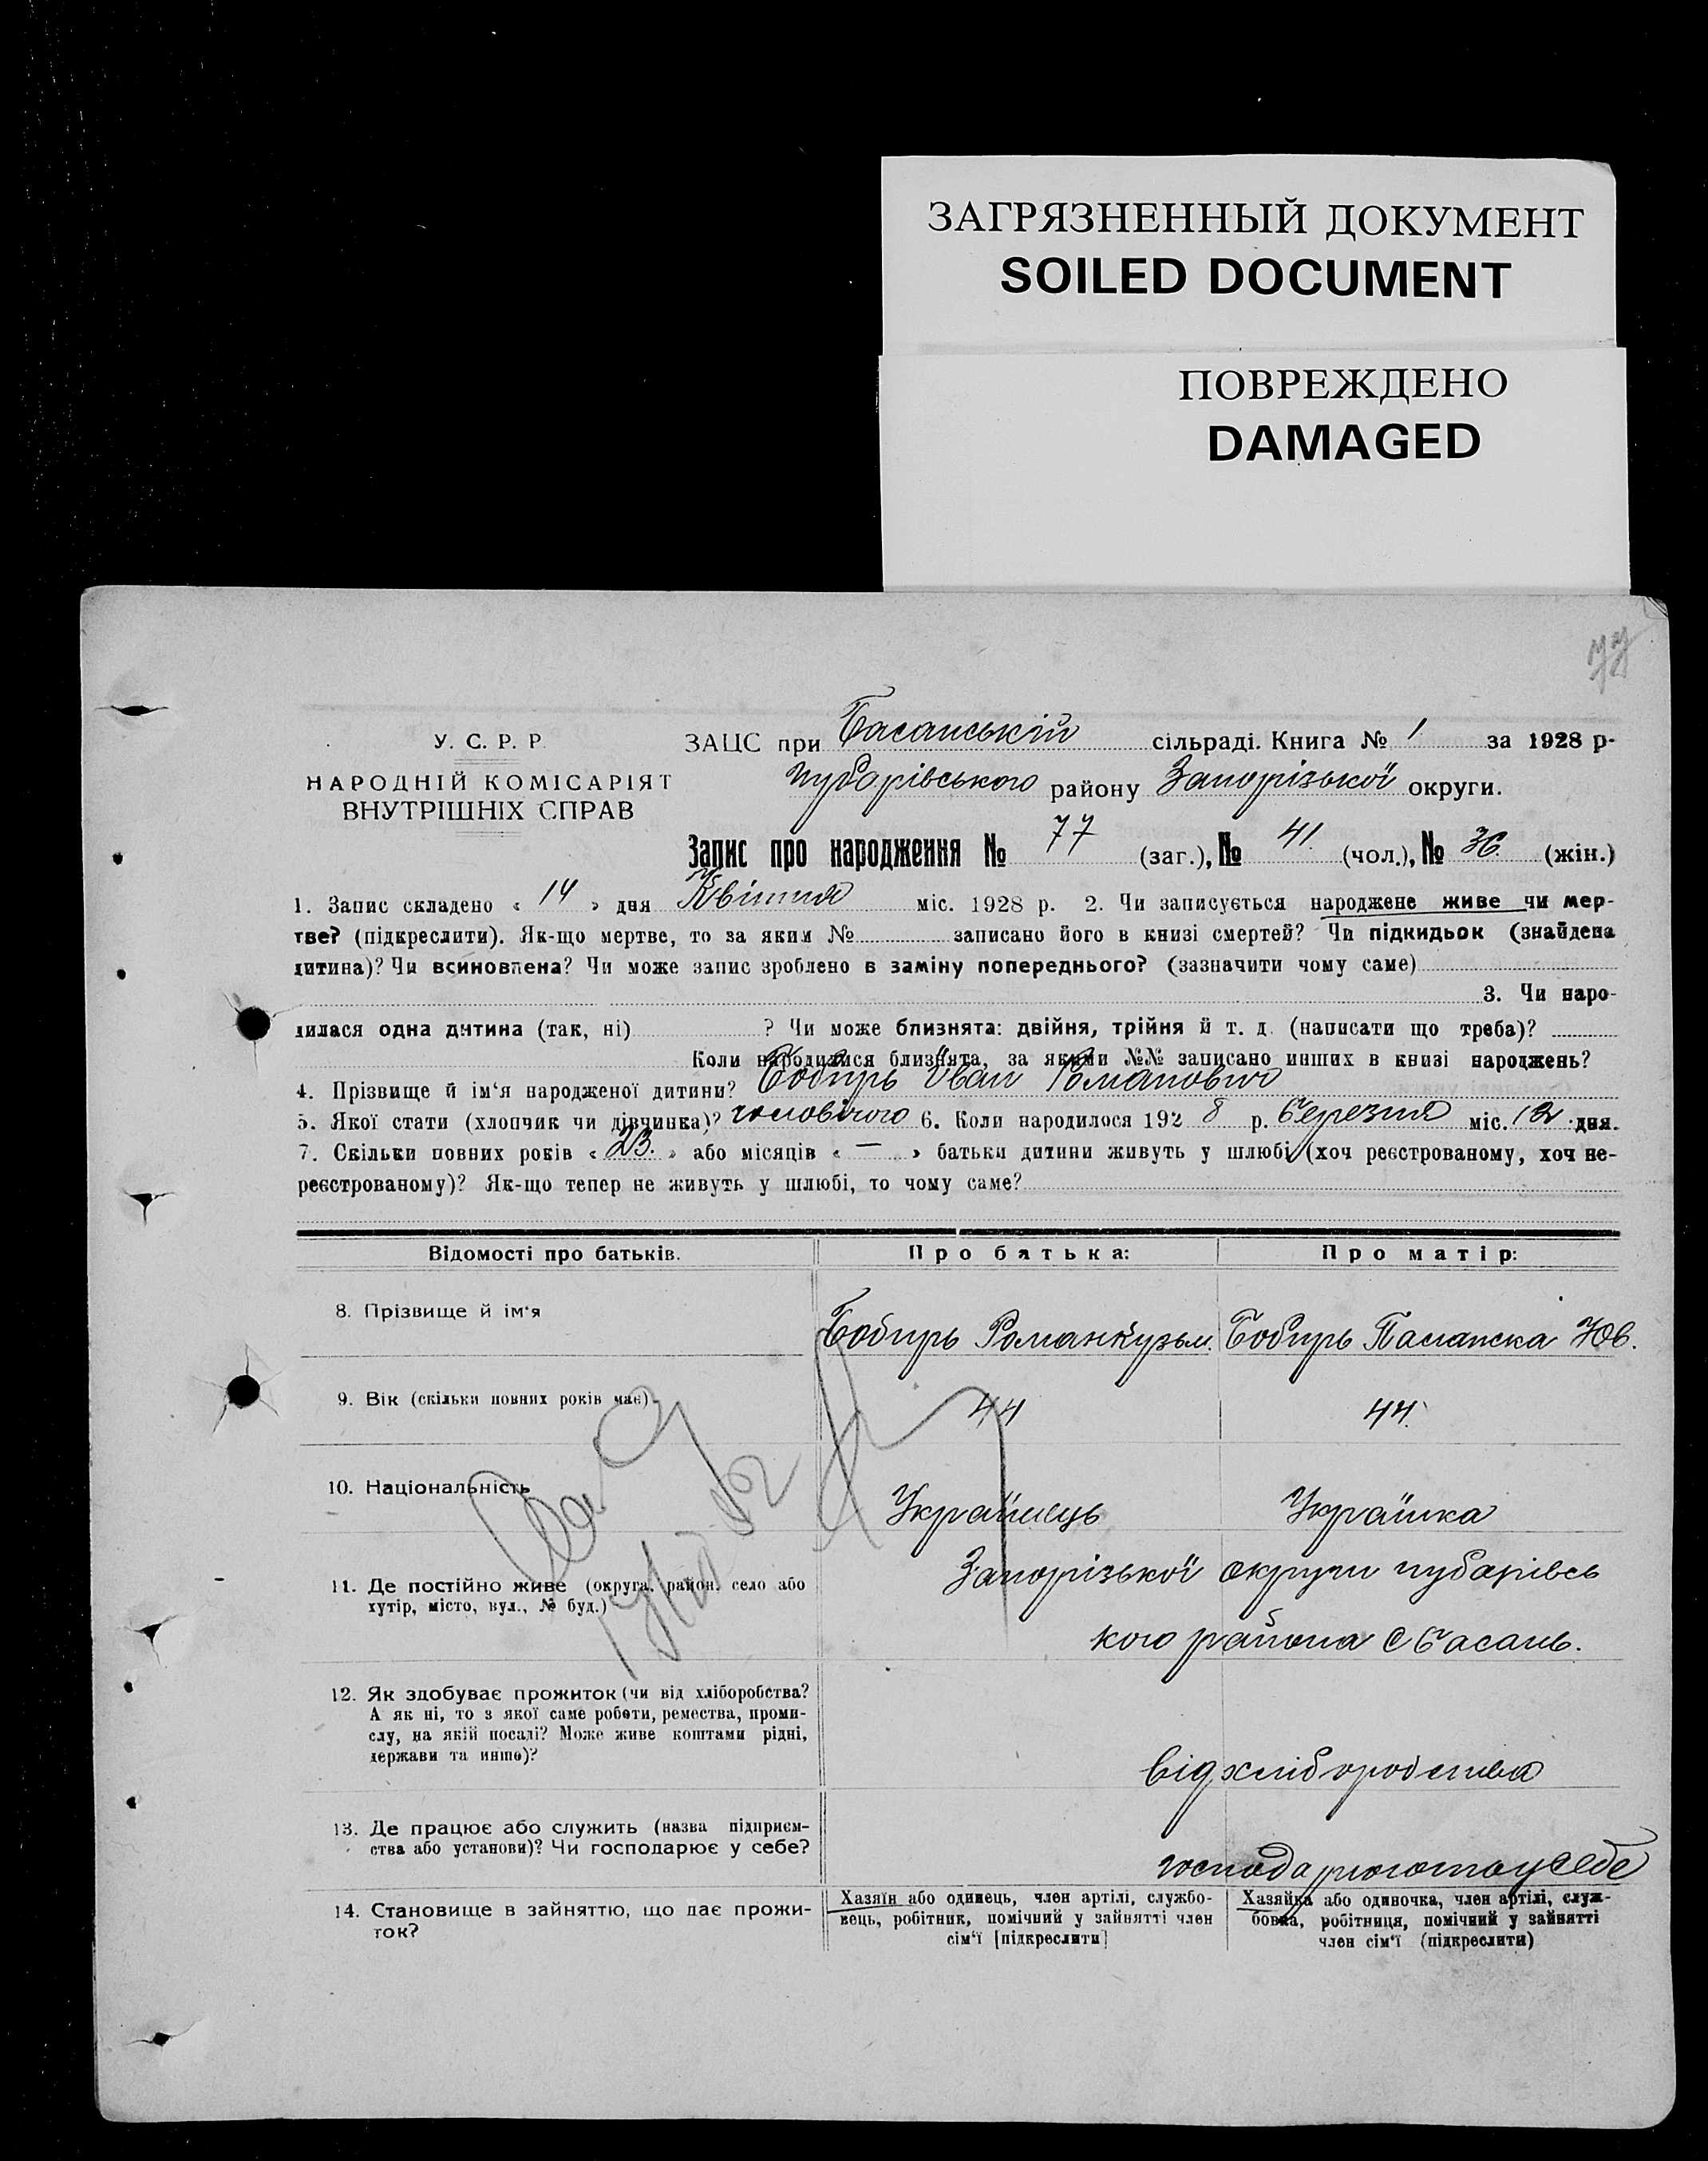 ЗАГРЯЗНЕННЫЙ ДОКУМЕНТ
SOILED DOCUMENT
ПОВРЕЖДЕНО
DAMAGED
У. С. Р. Р.
НАРОДНІЙ КОМІСАРІЯТ
ВНУТРІШНІХ СПРАВ
ЗАЦС при Басанській сільраді. Книга № 1 за 1928 р.
Чубарівського району Запорізької округи.
Запис про народження № 77 (заг.), № 41. (чол.), № 36. (жін.)
1. Запис складено « 14 » дня Квітня міс. 1928 р. 2. Чи записується народжене живе чи мер-
тве? (підкреслити). Як-що мертве, то за яким № записано його в книзі смертей? Чи підкидьок (знайдена
дитина)? Чи всиновлена? Чи може запис зроблено в заміну попереднього? (зазначити чому саме)
3. Чи наро-
дилася одна дитина (так, ні) ? Чи може близнята: двійня, трійня й т. д. (написати що треба)?
Коли народилися близнята, за якими №№ записано инших в книзі народжень?
4. Прізвище й ім'я народженої дитини? Бобирь Іван Романович
5. Якої стати (хлопчик чи дівчинка)? чоловічого 6. Коли народилося 192 8 р. березня міс. 12 дня.
7. Скільки повних років « 23. » або місяців « — » батьки дитини живуть у шлюбі (хоч реєстрованому, хоч не-
реєстрованому)? Як-що тепер не живуть у шлюбі, то чому саме?
Відомості про батьків.
Про батька:
Про матір:
8. Прізвище й ім'я
Бобирь Роман Кузьм.
Бобирь Паланска Юв.
9. Вік (скільки повних років має)
44
44.
10. Національність
Українець
Українка
11. Де постійно живе (округа, район, село або
хутір, місто, вул., № буд.)
Запорізької округи чубарівсь
кого района с Басань.
12. Як здобуває прожиток (чи від хліборобства?
А як ні, то з якої саме роботи, ремества, проми-
слу, на якій посаді? Може живе коштами рідні,
держави та инше)?
від хліборобства
13. Де працює або служить (назва підприєм-
ства або установи)? Чи господарює у себе?
господарюють у себе
14. Становище в зайняттю, що дає прожи-
ток?
Хазяїн або одинець, член артілі, службо-
вець, робітник, помічний у зайнятті член
сім'ї [підкреслити]
Хазяйка або одиночка, член артілі, служ-
бовка, робітниця, помічний у зайнятті
член сім'ї (підкреслити)